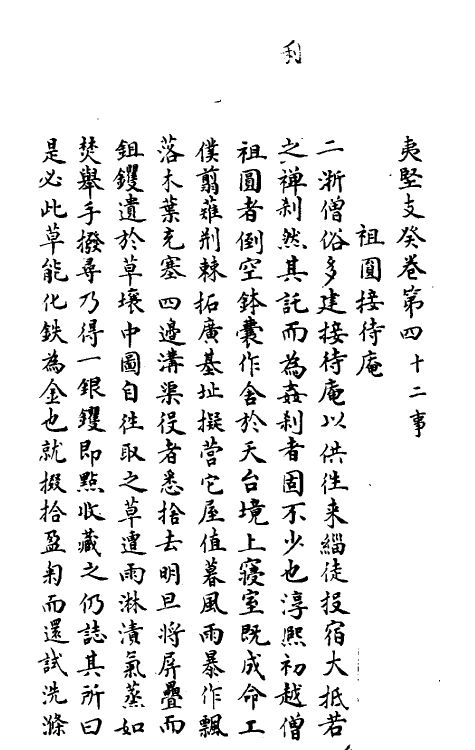 利
夷堅支癸卷第四十二事
祖圓接待庵
二浙僧俗多建接待庵以供徃来緇徒投宿大抵若
之禅刹然其託而為姦利者固不少也淳熙初越僧
祖圓者倒空鉢囊作舍於天台境上寝室既成命工
僕翦薙荆棘拓廣基址擬営它屋值暮風雨暴作飄
落木葉充塞四邊溝渠役者悉捨去明旦将屏疊而
鉏钁遺於草壤中圓自徃取之草遭雨淋漬氣蒸如
焚舉手撥尋乃得一銀钁即點收藏之仍誌其所曰
是必此草能化鉄為金也就掇拾盈匊而還試洗滌